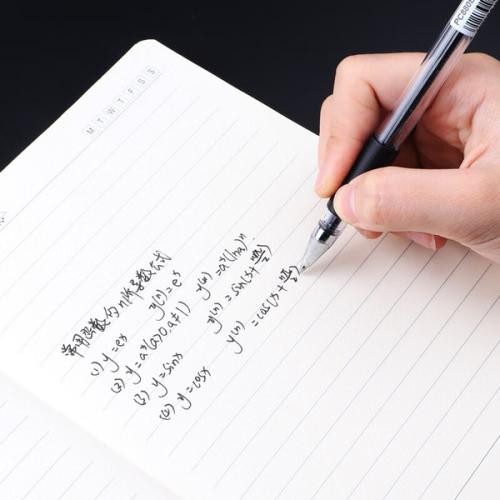 M T W T F S S
PC880B
常用函数的n阶导数公式
(1) y=eˣ y⁽ⁿ⁾=eˣ
(2) y=aˣ(a>0,a≠1) y⁽ⁿ⁾=aˣ(lna)ⁿ
(3) y=sinx y⁽ⁿ⁾=sin(x+nπ/2)
(4) y=cosx y⁽ⁿ⁾=cos(x+nπ/2)